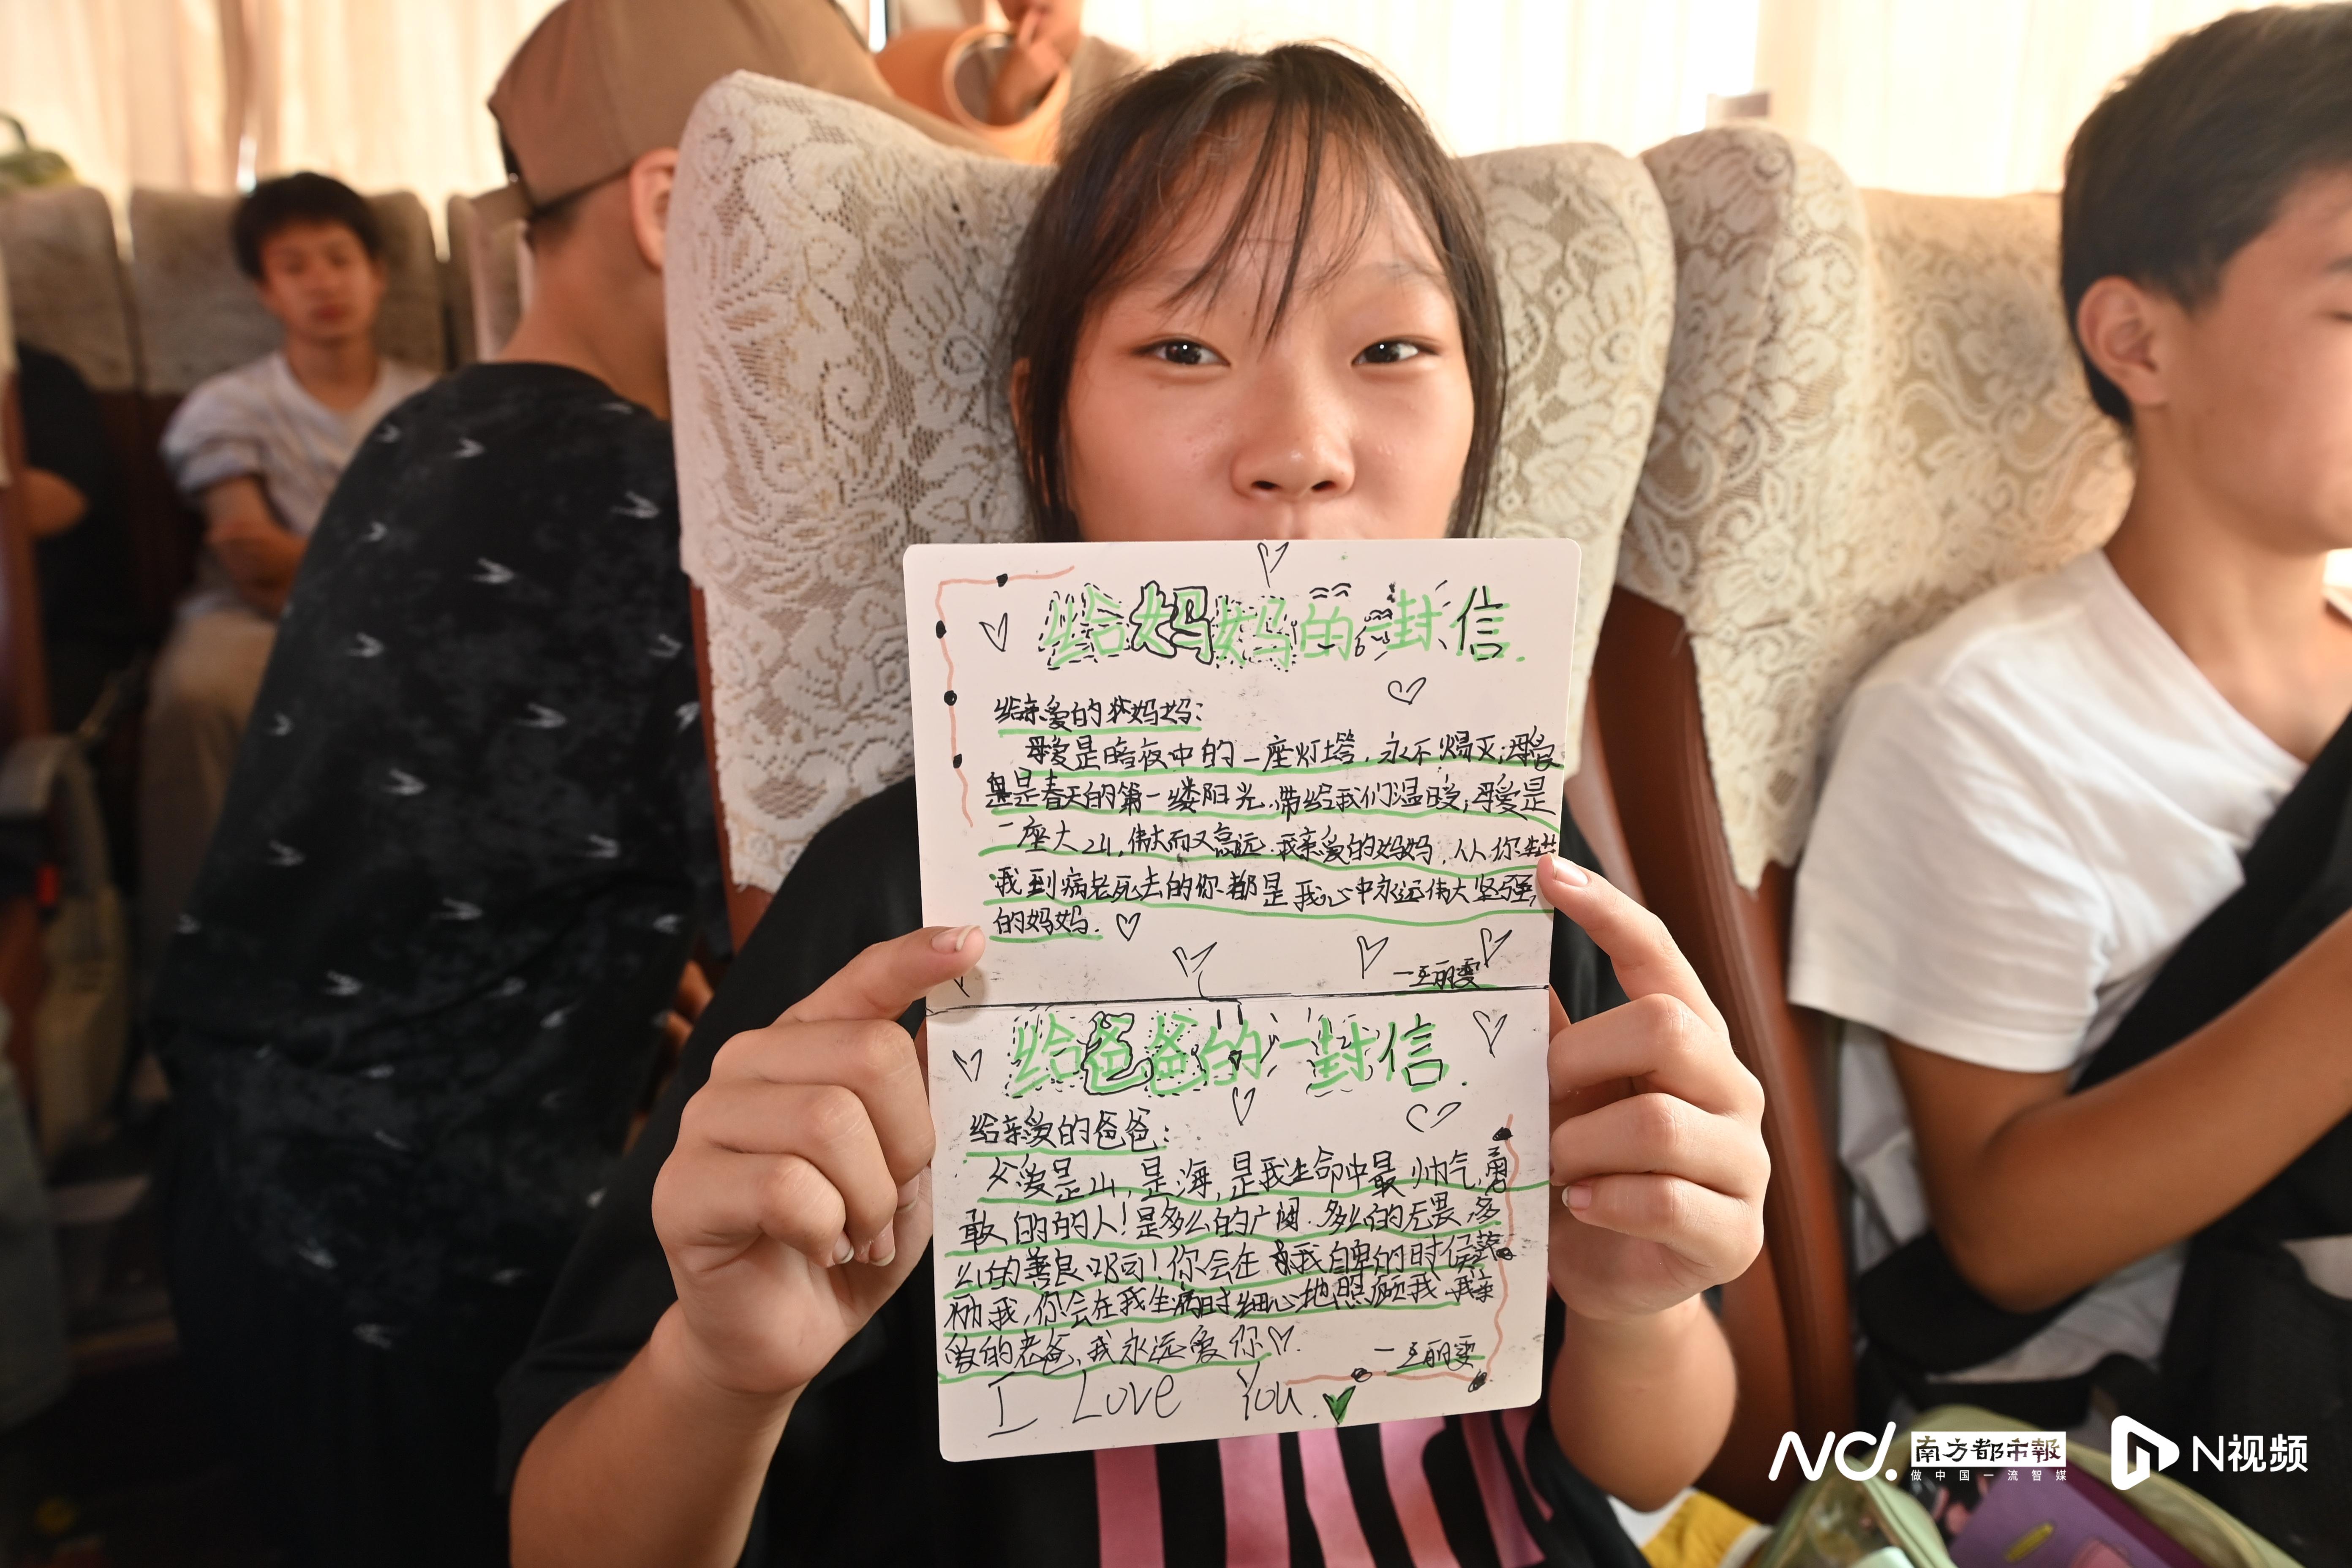 给妈妈的一封信.
给亲爱的妈妈:
母爱是暗夜中的一座灯塔,永不熄灭;母爱
是春天的第一缕阳光,带给我们温暖;母爱是
一座大山,伟大而又高远.我亲爱的妈妈,从你
我到病老死去的你都是我心中永远伟大坚强
的妈妈.
给爸爸的一封信.
给亲爱的爸爸:
父爱是山,是海,是我生命中最帅气,勇
敢的的人!是多么的广阔.多么的无畏,多
么的善良啊!你会在我自卑的时候鼓
励我,你会在我生病时细心地照顾我.我亲
爱的老爸,我永远爱你.
I Love You.
N视频
南方都市報
做中国一流智媒